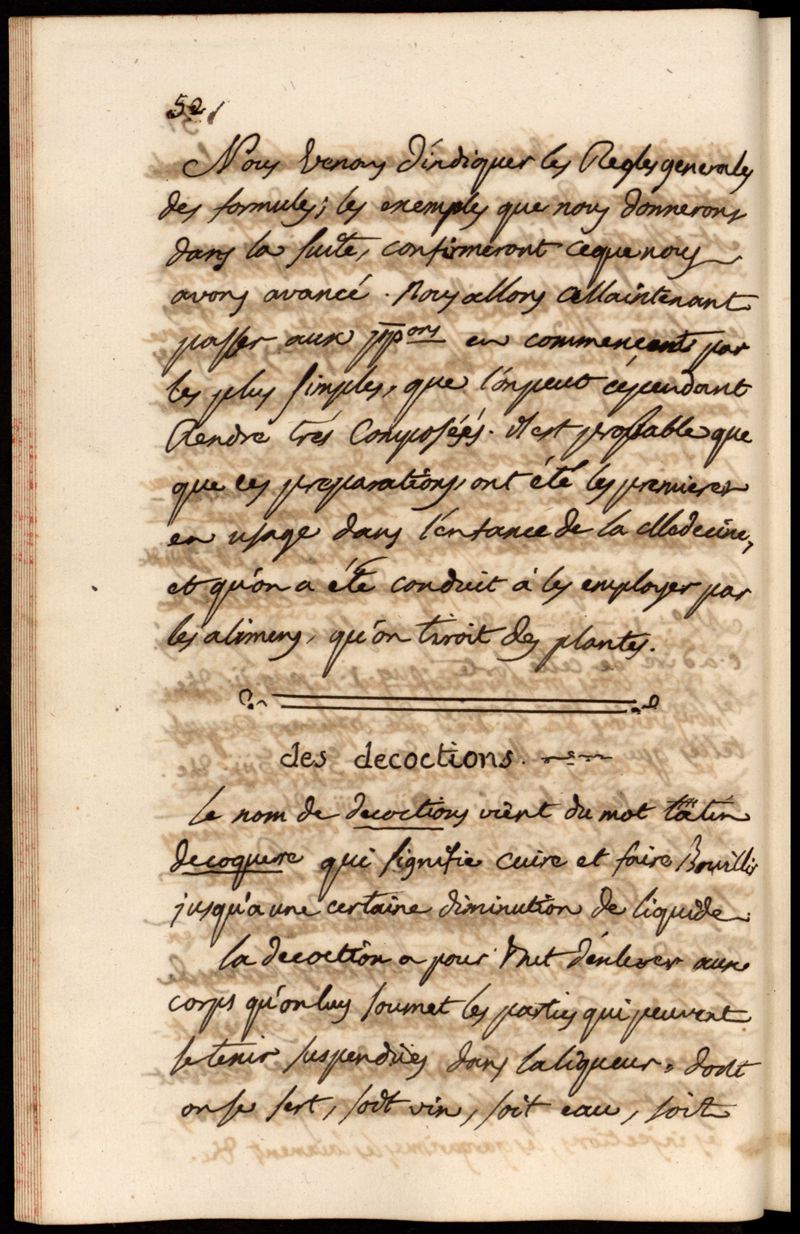 52
Nous venons d'indiquer les Regles generales
des formules; les exemples que nous donnerons
dans la suite, confirmeront ceque nous
avons avancé. Nous allons Maintenant
passer aux ppons en commençent par
les plus simples, que l'on peut cépendant
Rendre trés Composéés. il est probable que
que ces preparations ont été les premieres
en usage dans l'énfance de la Medecine,
et qu'on a été conduit à les employer par
les alimens, qu'on tiroit des plantes.
des decoctions.
le nom de decoctions vient du mot latin
decoquere qui signifie cuire et faire Bouillir
jusqu'a une certaine diminution de liquide
la decoction a pour but d'énlever aux
corps qu'on luy soumet les parties qui peuvent
se tenir suspendües dans la liqueur, dont
on se sert, soit vin, soit eau, soit